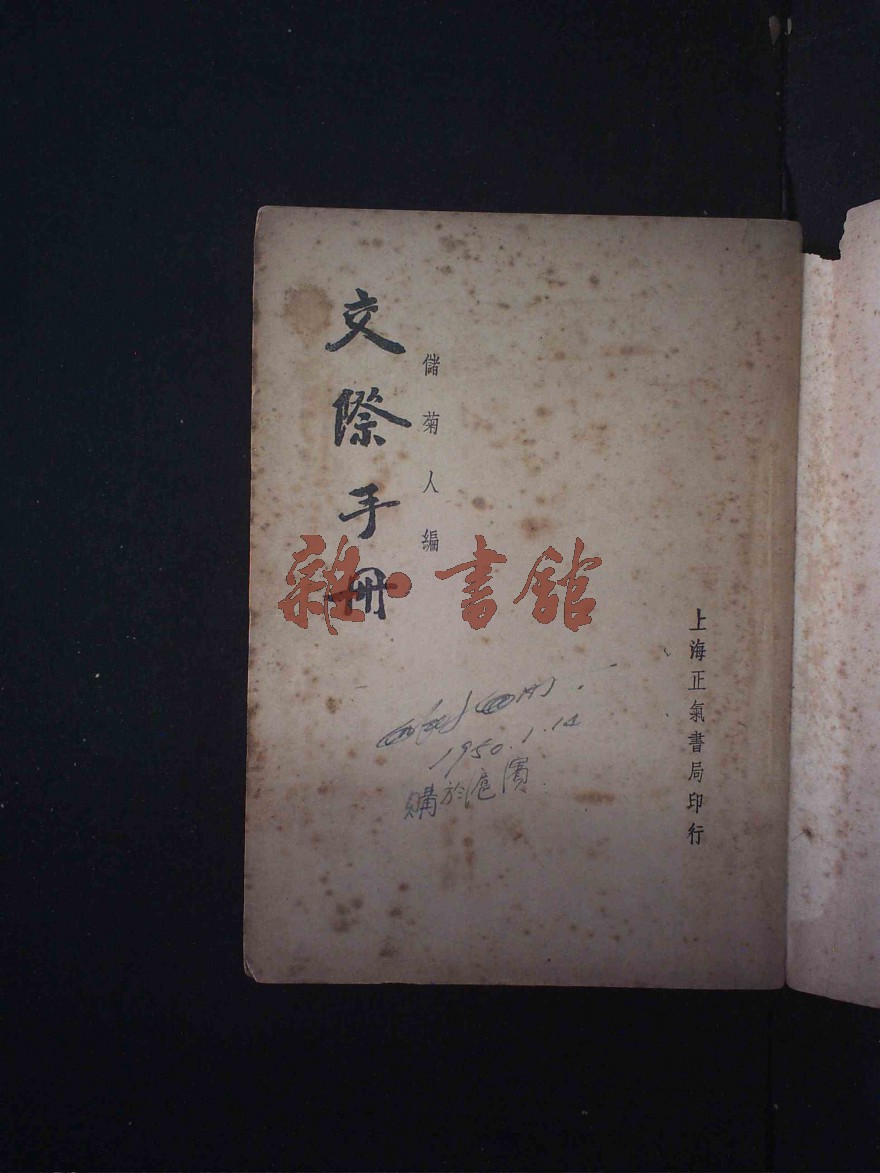 交際手冊
儲菊人編
雜·書館
上海正氣書局印行
1950.1.14
購於滬濱